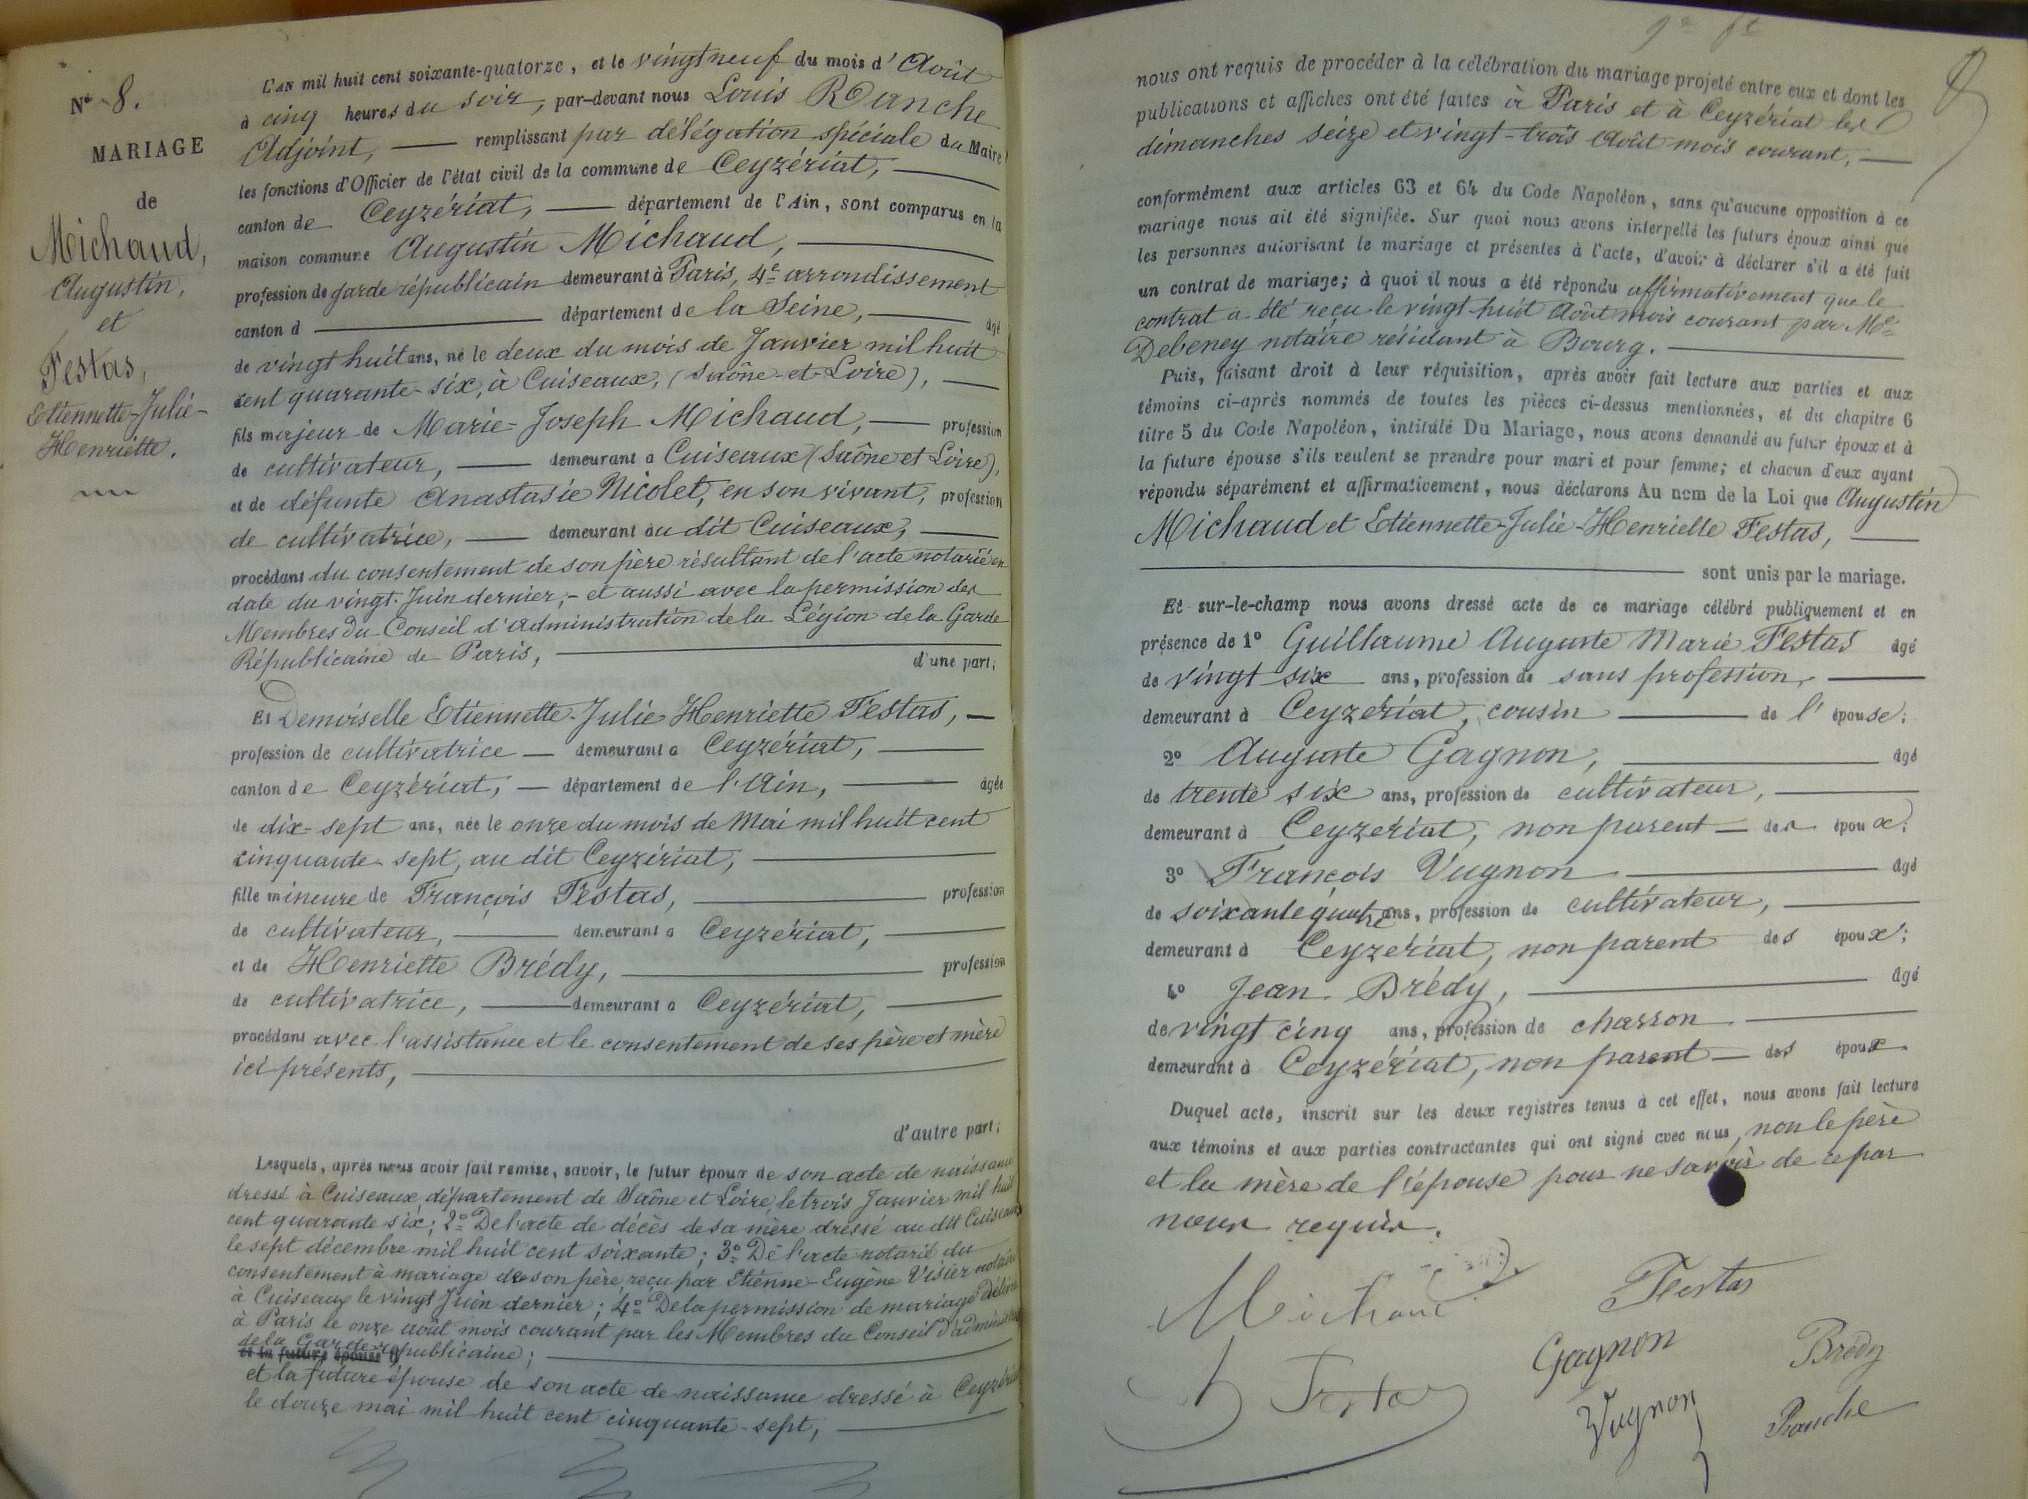 Nº 8.
MARIAGE
de
Michaud,
Augustin,
et
Festas,
Etiennette-Julie-
Henriette.
L'AN mil huit cent soixante-quatorze, et le vingt neuf du mois d'Août
à cinq heures du soir, par-devant nous Louis Ranche
Adjoint, remplissant par délégation spéciale du Maire
les fonctions d'Officier de l'état civil de la commune de Ceyzériat,
canton de Ceyzériat, département de l'Ain, sont comparus en la
maison commune Augustin Michaud,
profession de garde républicain demeurant à Paris, 4e arrondissement
canton d département de la Seine, âgé
de vingt huit ans, né le deux du mois de Janvier mil huit
cent quarante-six, à Cuiseaux, (Saône-et-Loire),
fils majeur de Marie-Joseph Michaud, profession
de cultivateur, demeurant à Cuiseaux (Saône et Loire),
et de défunte Anastasie Nicolet, en son vivant, profession
de cultivatrice, demeurant au dit Cuiseaux,
procédant du consentement de son père résultant de l'acte notarié en
date du vingt Juin dernier; - et aussi avec la permission des
Membres du Conseil d'administration de la Légion de la Garde
Républicaine de Paris,
d'une part;
Et Demoiselle Etiennette-Julie Henriette Festas,
profession de cultivatrice demeurant à Ceyzériat,
canton de Ceyzériat, département de l'Ain, âgée
de dix-sept ans, née le onze du mois de Mai mil huit cent
cinquante-sept, au dit Ceyzériat,
fille mineure de François Festas, profession
de cultivateur, demeurant à Ceyzériat,
et de Henriette Brédy, profession
de cultivatrice, demeurant à Ceyzériat,
procédant avec l'assistance et le consentement de ses père et mère
ici présents,
d'autre part;
Lesquels, après nous avoir fait remise, savoir, le futur époux de son acte de naissance
dressé à Cuiseaux, département de Saône et Loire, le trois Janvier mil huit
cent quarante six; 2º De l'acte de décès de sa mère dressé au dit Cuiseaux
le sept décembre mil huit cent soixante; 3º De l'acte notarié du
consentement à mariage de son père, reçu par Etienne-Eugène Visier notaire
à Cuiseaux le vingt Juin dernier; 4º De la permission de mariage délivré
à Paris le onze août mois courant par les Membres du Conseil d'administ
de la Garde républicaine;
et la future épouse
et la future épouse de son acte de naissance dressé à Ceyzériat
le douze mai mil huit cent cinquante-sept,
nous ont requis de procéder à la célébration du mariage projeté entre eux et dont les
publications et affiches ont été faites à Paris et à Ceyzériat les
dimanches seize et vingt-trois Août mois courant,
conformément aux articles 63 et 64 du Code Napoléon, sans qu'aucune opposition à ce
mariage nous ait été signifiée. Sur quoi nous avons interpellé les futurs époux ainsi que
les personnes autorisant le mariage et présentes à l'acte, d'avoir à déclarer s'il a été fait
un contrat de mariage; à quoi il nous a été répondu affirmativement que le
contrat a été reçu le vingt huit Août mois courant par Me
Debeney notaire résidant à Bourg.
Puis, faisant droit à leur réquisition, après avoir fait lecture aux parties et aux
témoins ci-après nommés de toutes les pièces ci-dessus mentionnées, et du chapitre 6
titre 5 du Code Napoléon, intitulé Du Mariage, nous avons demandé au futur époux et à
la future épouse s'ils veulent se prendre pour mari et pour femme; et chacun d'eux ayant
répondu séparément et affirmativement, nous déclarons Au nom de la Loi que Augustin
Michaud et Etiennette-Julie-Henriette Festas,
sont unis par le mariage.
Et sur-le-champ nous avons dressé acte de ce mariage célébré publiquement et en
présence de 1º Guillaume Auguste Marie Festas âgé
de vingt six ans, profession de sans profession,
demeurant à Ceyzériat, cousin de l'épouse;
2º Auguste Gagnon, âgé
de trente six ans, profession de cultivateur,
demeurant à Ceyzériat, non parent des époux;
3º François Vugnon âgé
de soixante quatre ans, profession de cultivateur,
demeurant à Ceyzériat, non parent des époux;
4º Jean Brédy, âgé
de vingt cinq ans, profession de charron
demeurant à Ceyzériat, non parent des époux
Duquel acte, inscrit sur les deux registres tenus à cet effet, nous avons fait lecture
aux témoins et aux parties contractantes qui ont signé avec nous, non le père
et la mère de l'épouse pour ne savoir de ce par
nous requis.
Michaud
Festas
Festas
Gagnon
Brédy
Vugnon
Ranche